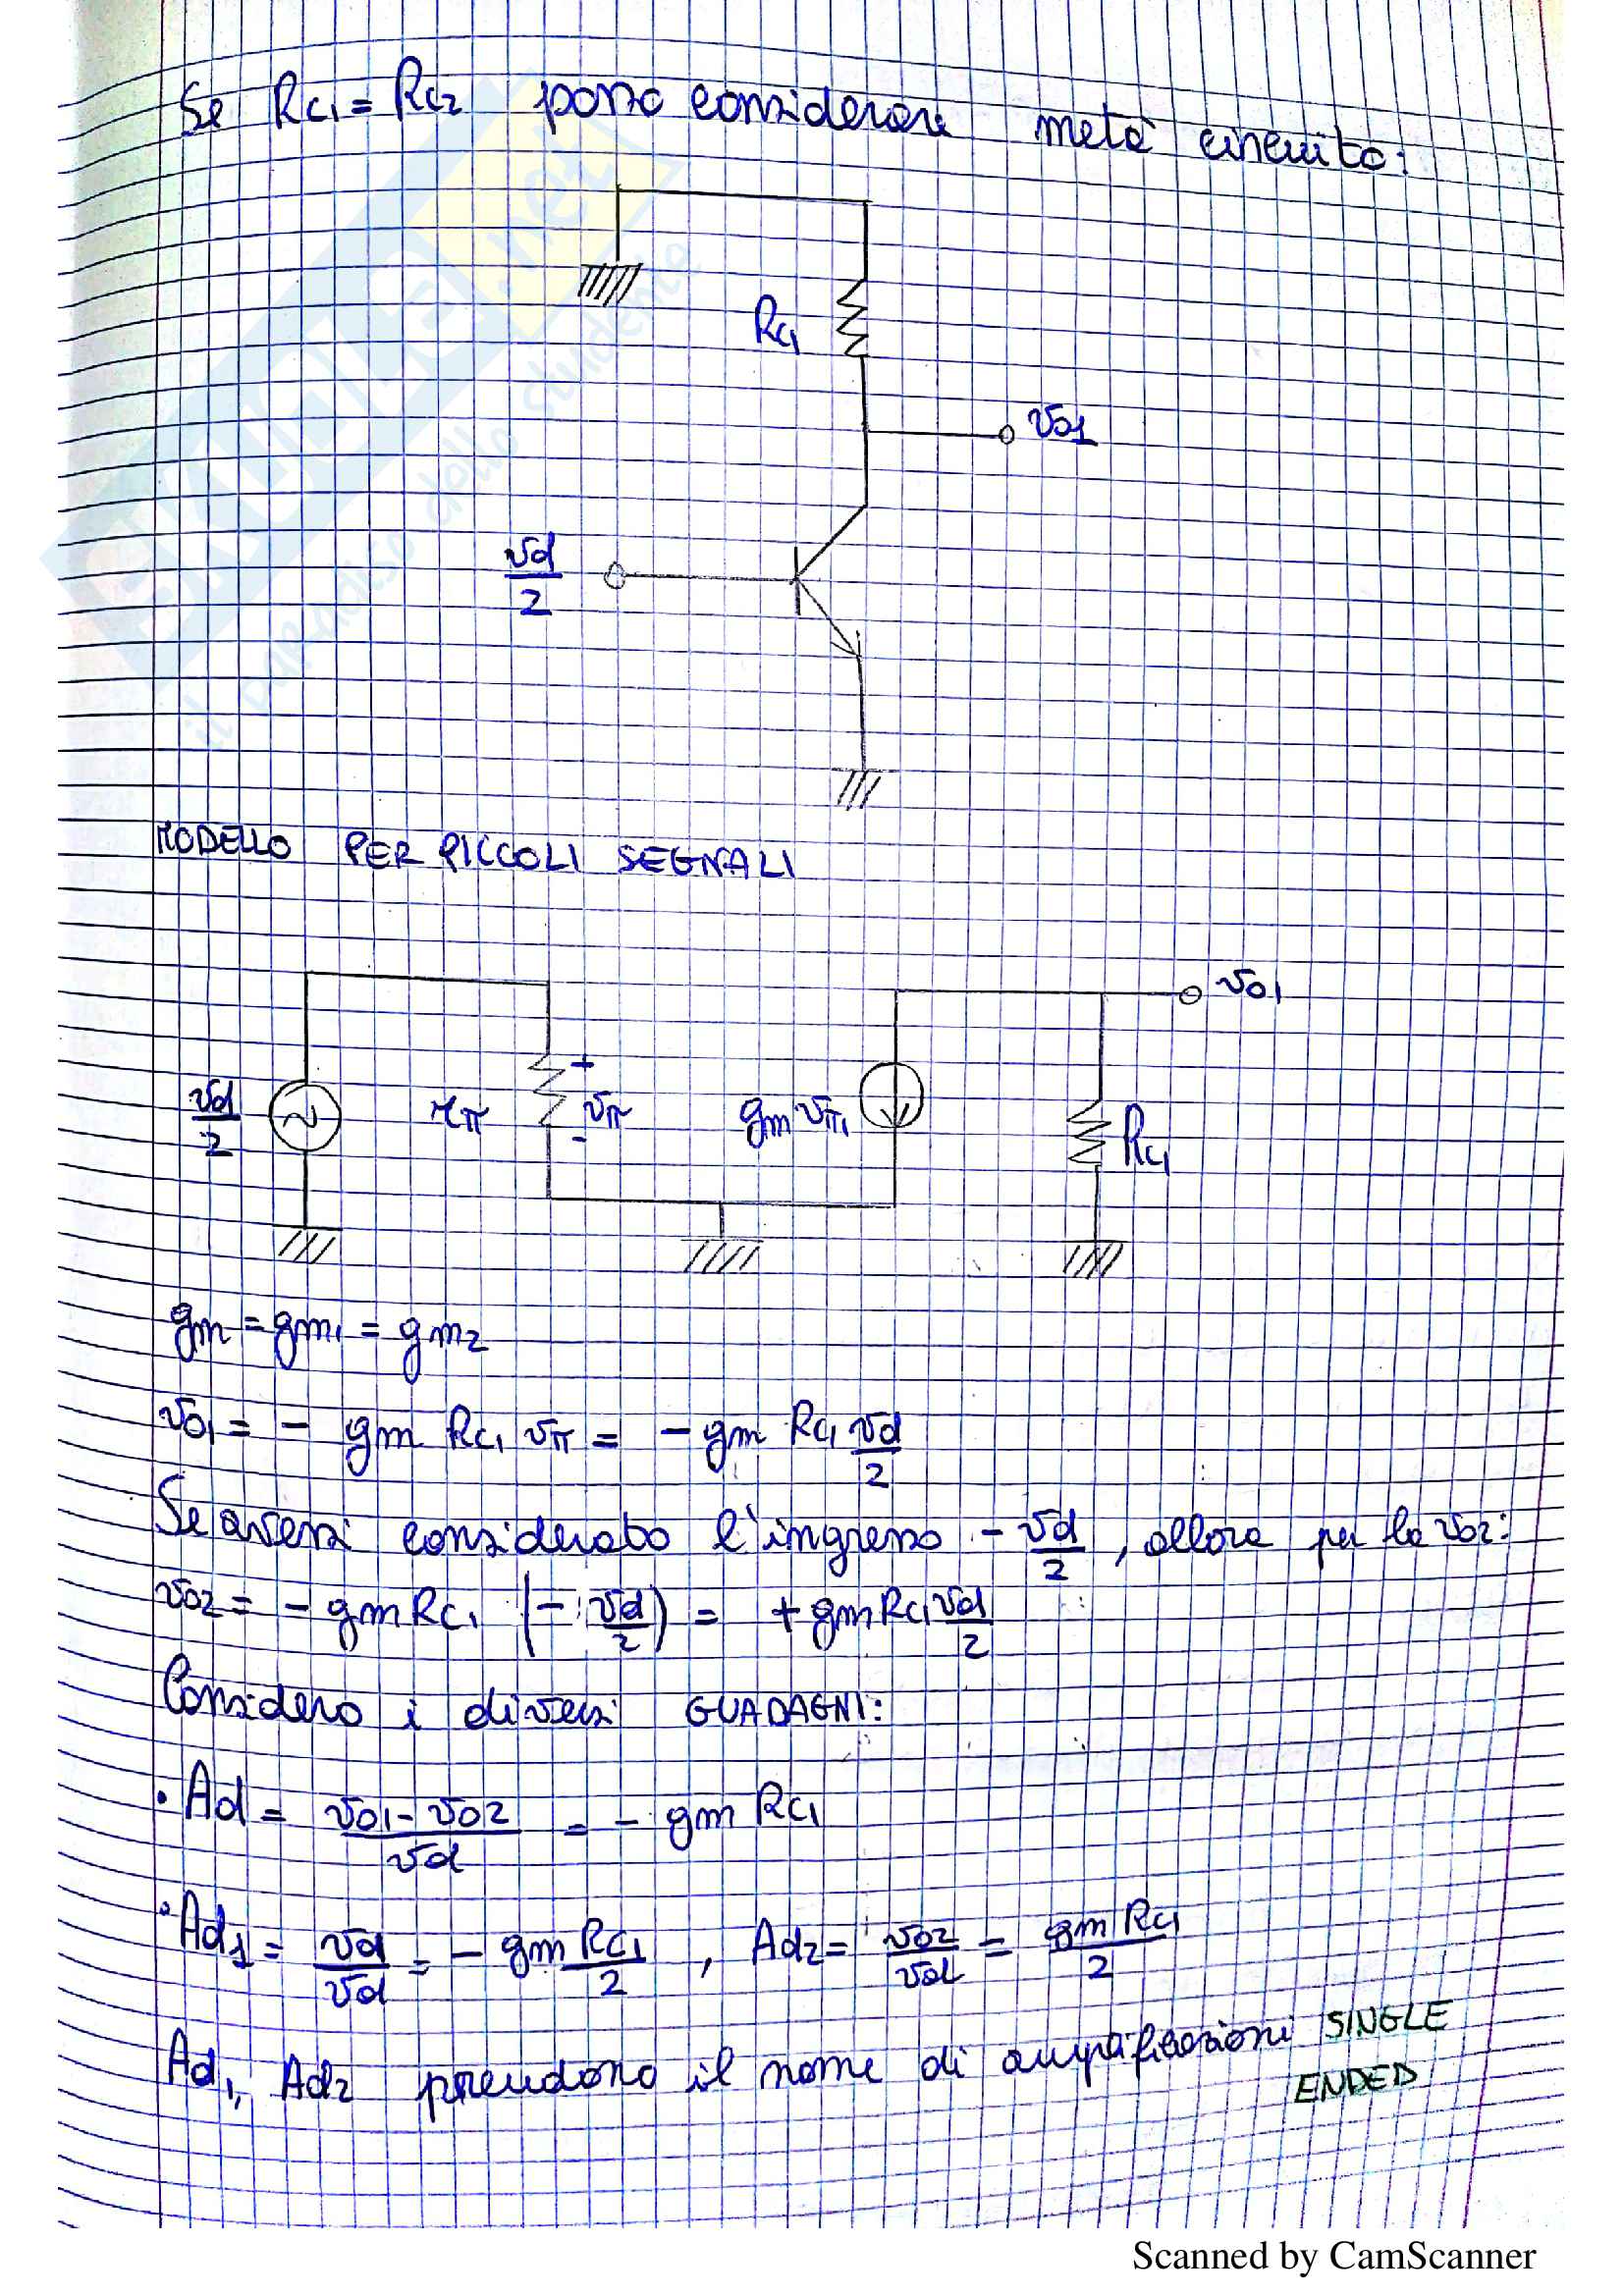 Se Rc1 = Rc2 posso considerare metà circuito:
Rc1
vo1
vd/2
MODELLO PER PICCOLI SEGNALI
vo1
vd/2
rπ
+
vπ
-
gm vπ1
Rc1
gm = gm1 = gm2
vo1 = - gm Rc1 vπ = - gm Rc1 vd/2
Se avessi considerato l'ingresso - vd/2, allora per la vo2:
vo2 = - gm Rc1 (- vd/2) = + gm Rc1 vd/2
Considero i diversi GUADAGNI:
· Ad = (vo1 - vo2)/vd = - gm Rc1
· Ad1 = vd/vd = - gm Rc1/2 , Ad2 = vo2/vd = gm Rc1/2
Ad1, Ad2 prendono il nome di amplificazioni SINGLE
ENDED
SKUOLA.net
il paradiso dello studente
Scanned by CamScanner